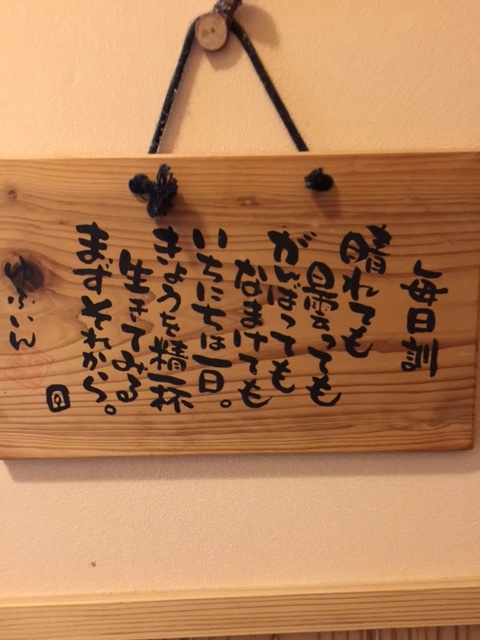 毎日訓
晴れても
曇っても
がんばっても
なまけても
いちにちは一日。
きょうを精一杯
生きてみる
まずそれから。